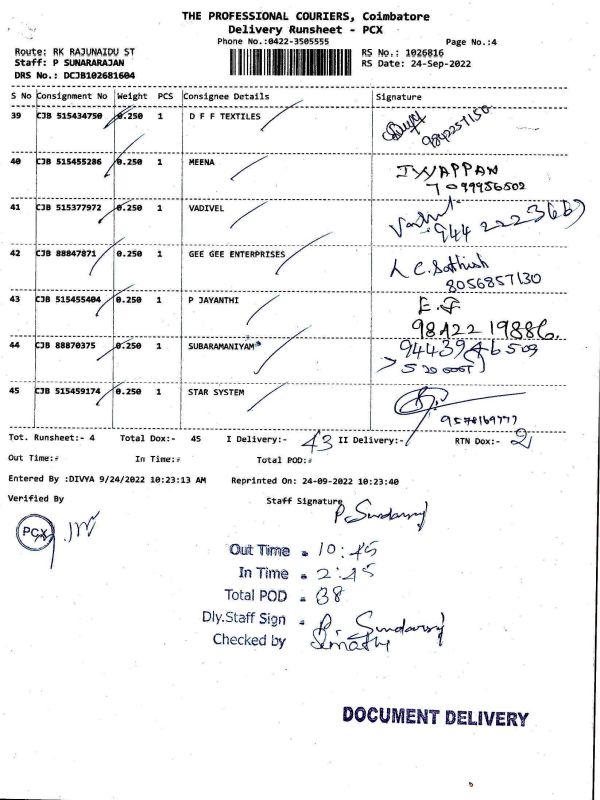 THE PROFESSIONAL COURIERS, Coimbatore
Delivery Runsheet - PCX
Phone No.:0422-3505555
Page No.:4
Route: RK RAJUNAIDU ST
RS No.: 1026816
Staff: P SUNARARAJAN
RS Date: 24-Sep-2022
DRS No.: DCJB102681604
S No Consignment No Weight PCS Consignee Details Signature
39 CJB 515434750 0.250 1 D F F TEXTILES
9842257150
40 CJB 515455286 0.250 1 MEENA
41 CJB 515377972 0.250 1 VADIVEL
42 CJB 88847871 0.250 1 GEE GEE ENTERPRISES
C. Sathish
8056857130
43 CJB 515455404 0.250 1 P JAYANTHI
E.J
9842219886.
44 CJB 88870375 0.250 1 SUBARAMANIYAM
45 CJB 515459174 0.250 1 STAR SYSTEM
9578169777
Tot. Runsheet:- 4 Total Dox:- 45 I Delivery:- 43 II Delivery:- RTN Dox:- 2
Out Time:# In Time:# Total POD:#
Entered By :DIVYA 9/24/2022 10:23:13 AM Reprinted On: 24-09-2022 10:23:40
Verified By Staff Signature
P. Sundarraj
PCX
Out Time - 10:45
In Time - 2:45
Total POD - 38
Dly.Staff Sign - P. Sundarraj
Checked by
DOCUMENT DELIVERY